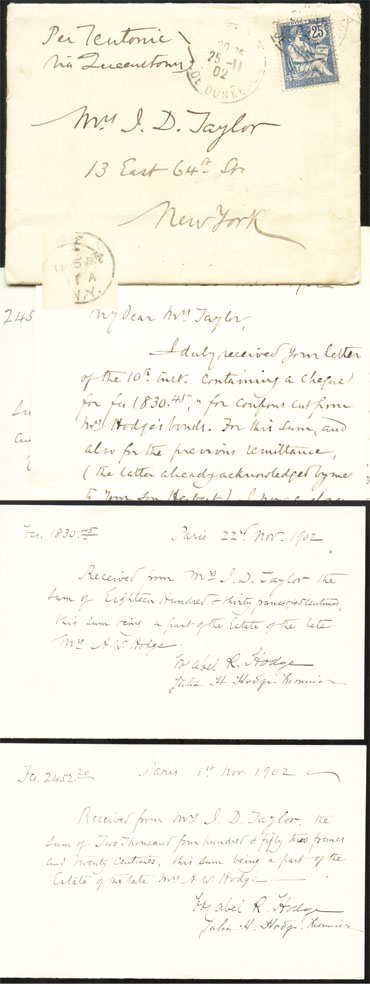 Per Teutonic
via Queenstown
25-11
02
25
Mrs I. D. Taylor
13 East 64th St.
New York
N.Y.
245
My dear Mrs Taylor,
I duly received your letter
of the 10th inst. containing a cheque
for fcs 1830.45, " for coupons cut from
Mrs Hodge's bonds. For this sum, and
also for the previous remittance,
(the latter already acknowledged by me
to your son Herbert) I
Fcs. 1830.45 Paris 22nd Nov. 1902
Received from Mrs I. D. Taylor the
sum of Eighteen Hundred & thirty francs 45 centimes,
this sum being a part of the Estate of the late
Mrs A. W. Hodge.
Mabel R. Hodge
Julia H. Hodge
Fcs. 2452.20 Paris 1st Nov. 1902
Received from Mrs I. D. Taylor, the
sum of Two Thousand four hundred & fifty two francs
and twenty centimes, this sum being a part of the
Estate of the late Mrs A. W. Hodge.
Mabel R. Hodge
Julia H. Hodge